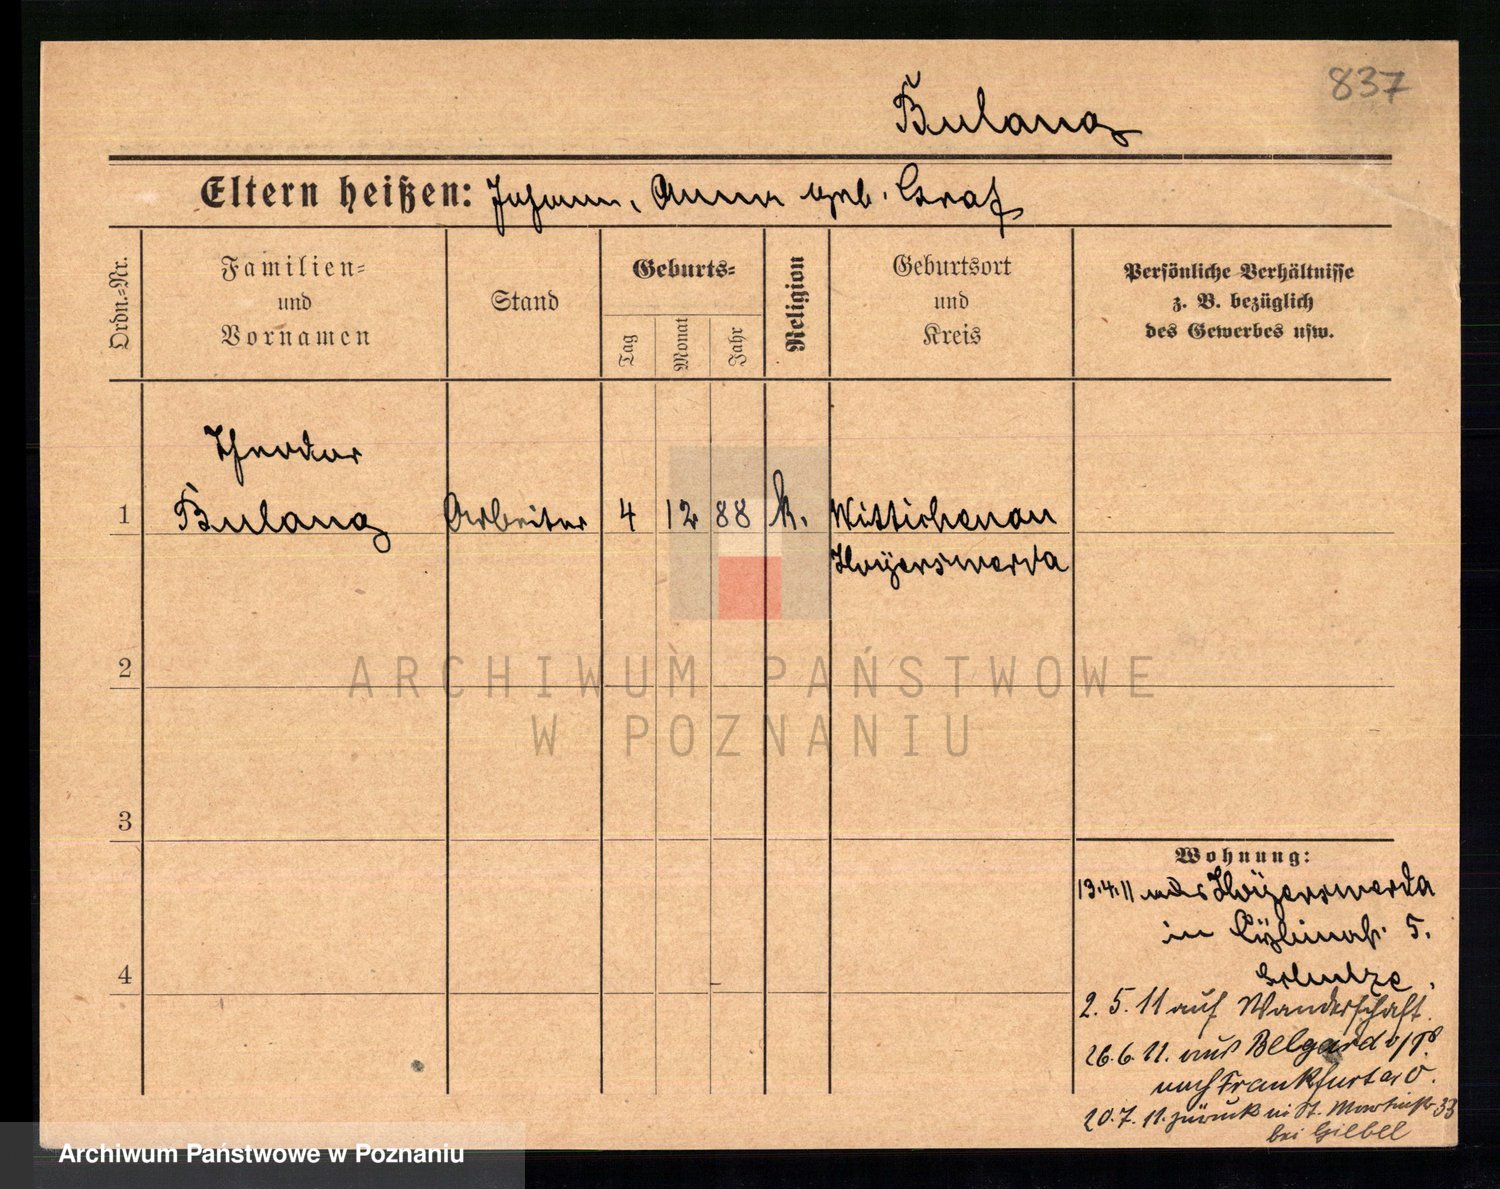 837
Bulang
Eltern heißen: Johann, Anna geb. Graf
Ordn.-Nr.
Familien-
und
Vornamen
Stand
Geburts-
Tag
Monat
Jahr
Religion
Geburtsort
und
Kreis
Persönliche Verhältnisse
z. B. bezüglich
des Gewerbes usw.
Theodor
1 Bulang Arbeiter 4 12 88 k. Wittichenau
Hoyerswerda
2
ARCHIWUM PAŃSTWOWE
W POZNANIU
3
Wohnung:
13.4.11 aus Hoÿerswerda
in 5.
Schulze.
4
2.5.11 auf Wanderschaft.
26.6.11. aus Belgard
nach Frankfurt a/O.
20.7.11. zurück in St. Martinstr 33
bei
Archiwum Państwowe w Poznaniu